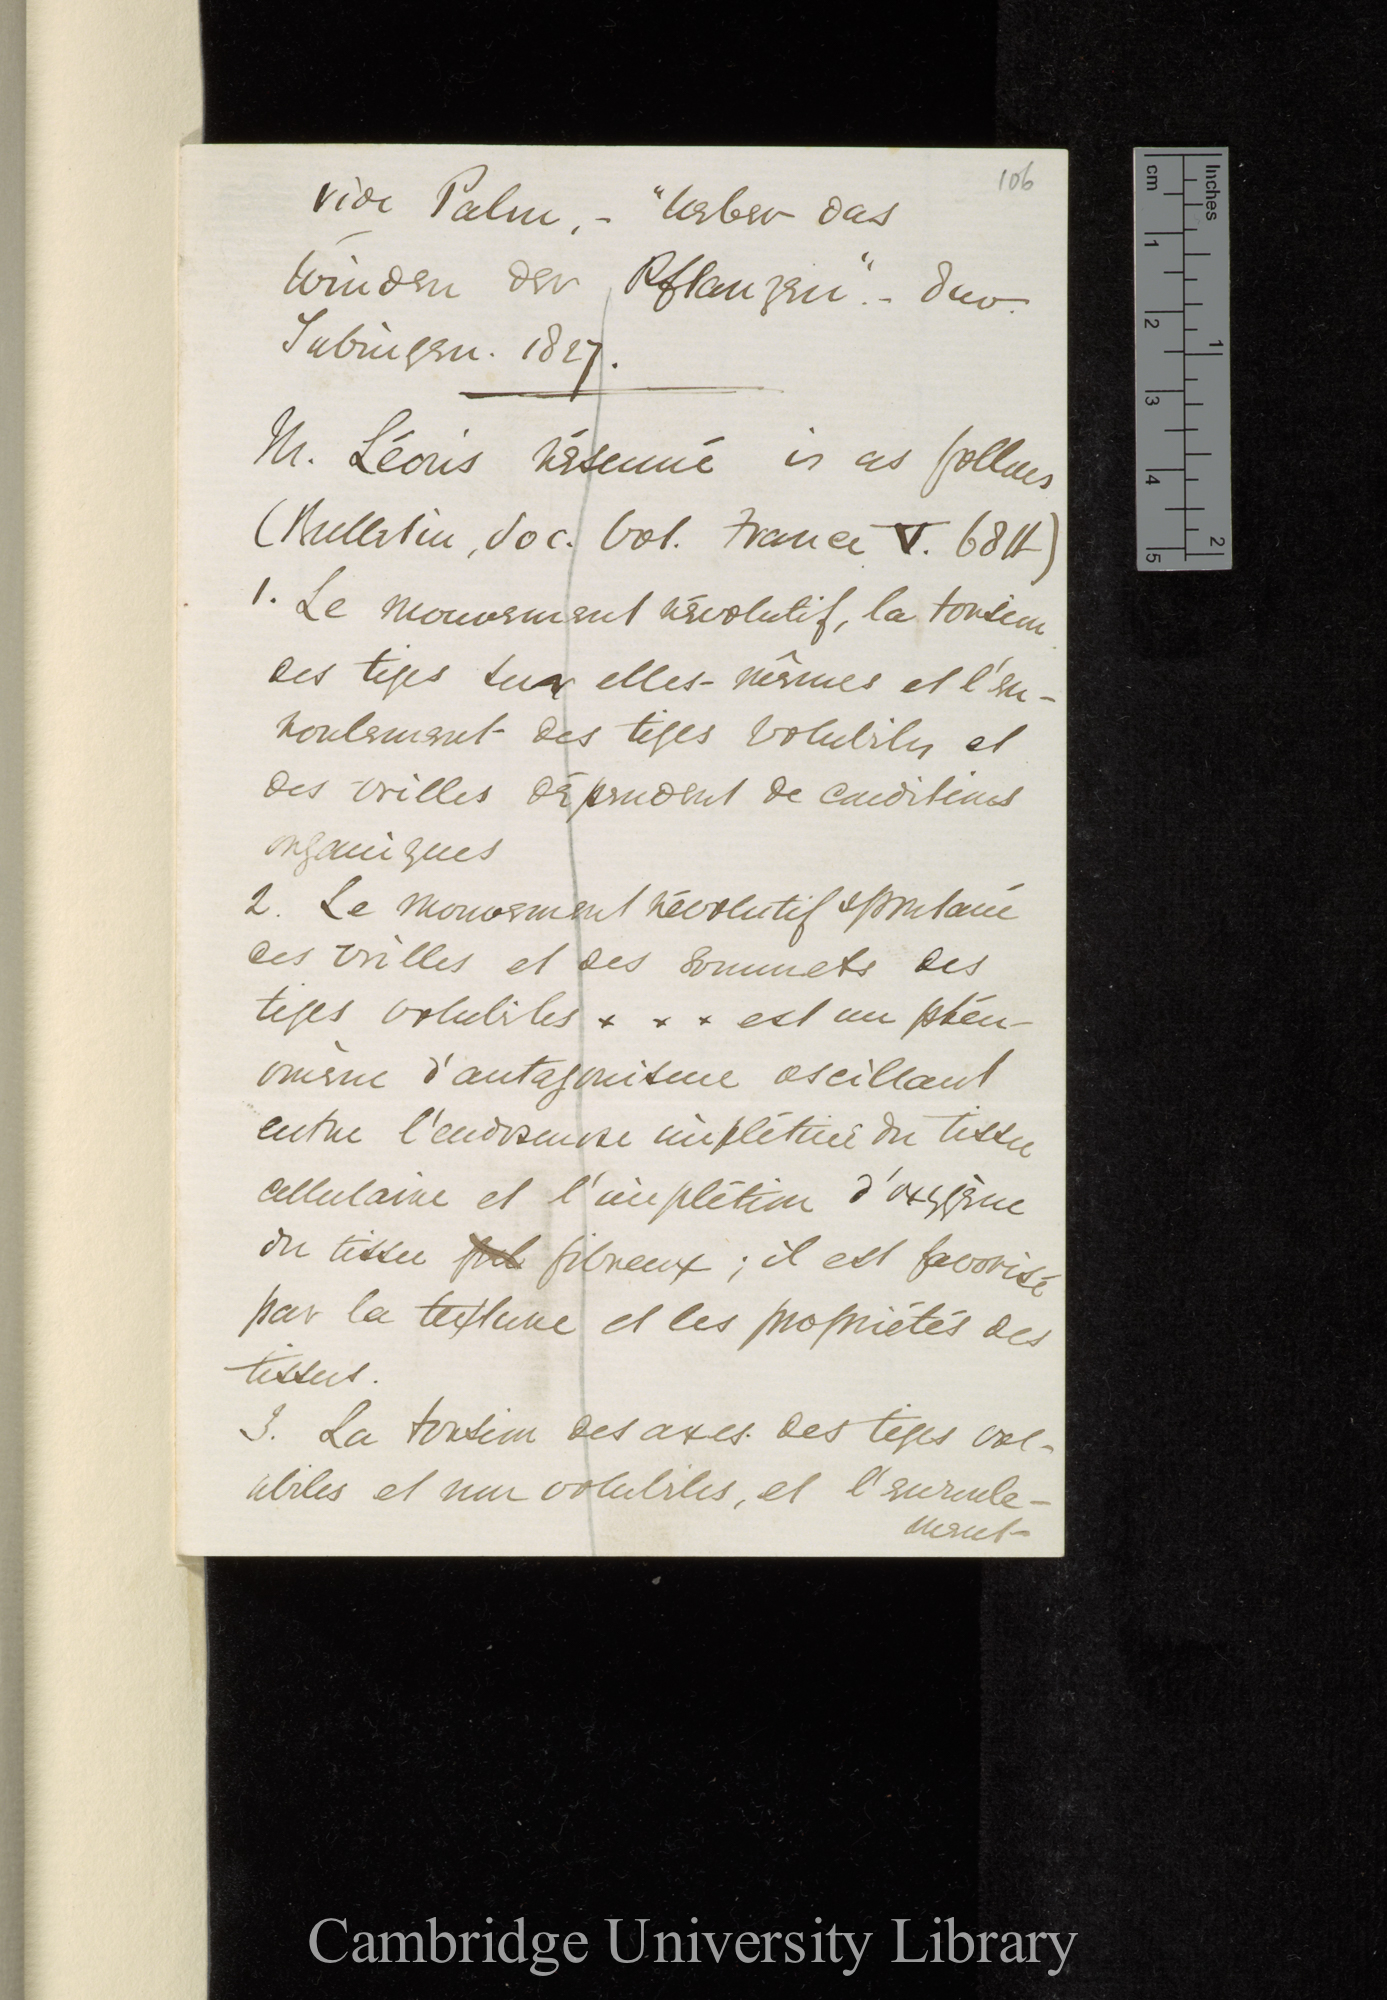 106
vide Palm, - "Ueber das
Winden der Pflanzen". - 8vo.
Tubingen. 1827.
M. Léon's résumé is as follows
(Bulletin, Soc. bot. France V. 624)
1. Le mouvement révolutif, la torsion
des tiges sur elles-mêmes et l'en-
roulement des tiges volubiles et
des vrilles dépendent de conditions
organiques
2. Le mouvement révolutif spontané
des vrilles et des sommets des
tiges volubiles x x x est un phén-
omène d'antagonisme oscillant
entre l'endosmose implétive du tissu
cellulaire et l'implétion d'oxygène
du tissu fibreux ; il est favorisé
par la texture et les propriétés des
tissus.
3. La torsion des axes des tiges vol-
ubiles et non volubiles, et l'enroule-
ment
cm 1 2 3 4 5
Inches 1 2
Cambridge University Library